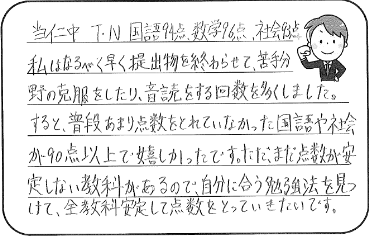 当仁中 T・N 国語94点、数学96点、社会93点
私はなるべく早く提出物を終わらせて、苦手分
野の克服をしたり、音読をする回数を多くしました。
すると、普段あまり点数をとれていなかった国語や社会
が90点以上で嬉しかったです。ただ、まだ点数が安
定しない教科があるので、自分に合う勉強法を見つ
けて、全教科安定して点数をとっていきたいです。